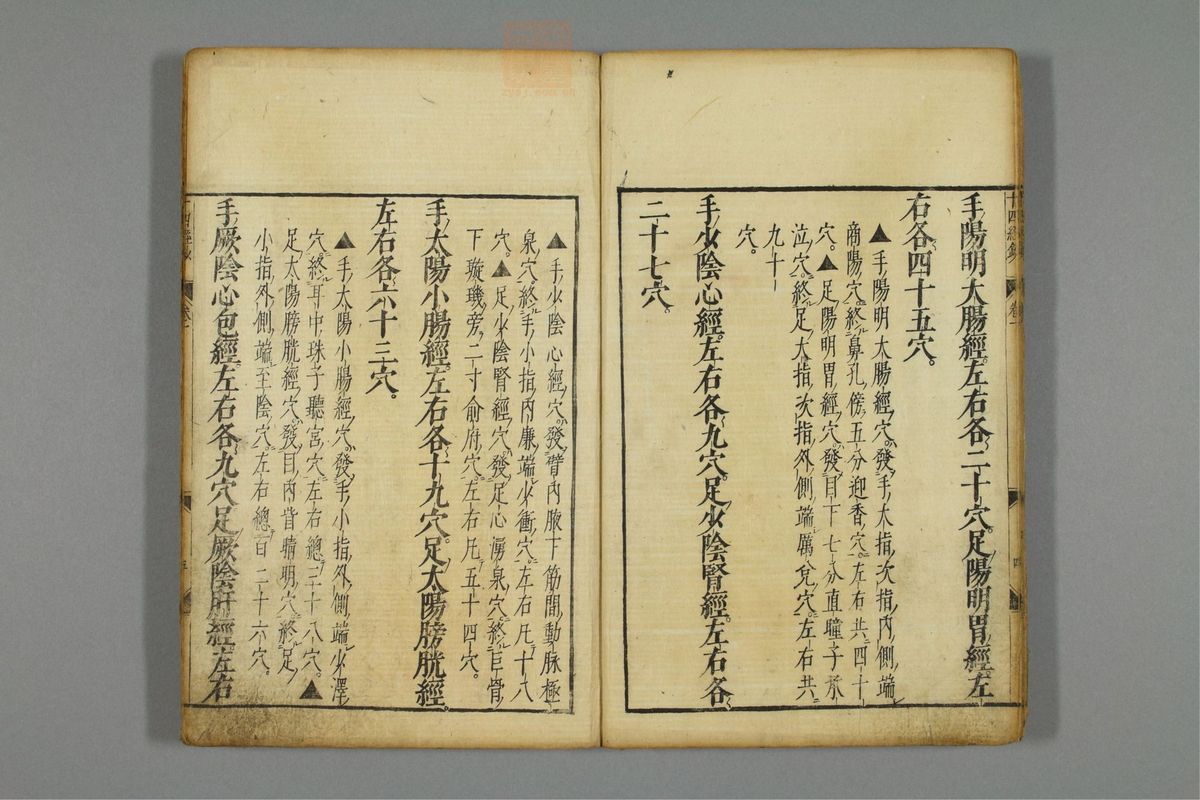 手陽明大腸經左右各二十穴足陽明胃經左
右各四十五穴。
▲手陽明大腸經ノ穴ハ發手ノ大指次指ノ內側ノ端
商陽ノ穴ニ終ル鼻孔ノ傍五分迎香ノ穴ニ左右共ニ四十
穴。▲足陽明胃經ノ穴ハ發目ノ下七分直瞳子承
泣ノ穴ニ終ル足ノ大指次指外側ノ端厲兌ノ穴ニ左右共ニ
九十
穴。
手少陰心經左右各九穴足少陰腎經左右各
二十七穴。
▲手ノ少陰心經ノ穴ハ發臂內腋下筋間動脉極
泉ノ穴ニ終ル手ノ小指內廉ノ端少衝ノ穴ニ左右凡十八
穴。▲足ノ少陰腎經ノ穴ハ發足心湧泉ノ穴ニ終ル巨骨ノ
下璇璣ノ旁二寸俞府ノ穴ニ左右凡五十四穴。
手太陽小腸經左右各十九穴足太陽膀胱經
左右各六十三穴。
▲手ノ太陽小腸經ノ穴ハ發手ノ小指ノ外側ノ端少澤ノ
穴ニ終ル耳中ノ珠子聽宮ノ穴ニ左右總三十八穴。▲
足ノ太陽膀胱經ノ穴ハ發目ノ內眥睛明ノ穴ニ終ル足ノ
小指外側ノ端至陰ノ穴ニ左右總百二十六穴。
手厥陰心包經左右各九穴足厥陰肝經左右